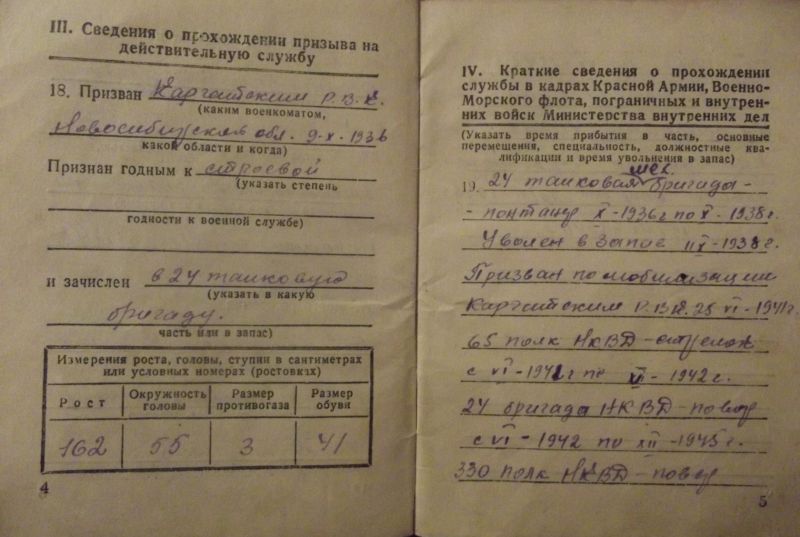 III. Сведения о прохождении призыва на
действительную службу
18. Призван Каргатским Р.В.К.
(каким военкоматом,
Новосибирской обл. 9-X-1936
какой области и когда)
Признан годным к строевой
(указать степень
годности к военной службе)
и зачислен в 24 танковую
(указать в какую
бригаду.
часть или в запас)
Измерения роста, головы, ступни в сантиметрах
или условных номерах (ростовках)
Рост Окружность головы Размер противогаза Размер обуви
162 55 3 41
4
IV. Краткие сведения о прохождении
службы в кадрах Красной Армии, Военно-
Морского флота, пограничных и внутрен-
них войск Министерства внутренних дел
(Указать время прибытия в часть, основные
перемещения, специальность, должностные ква-
лификации и время увольнения в запас)
мех.
19. 24 танковая бригады-
X-1936г по X-1938г.
Уволен в запас 1938г.
Призван по мобилизации
Каргатским Р.В.К. 25 VI-1941г.
65 полк НКВД-стрелок
с VI-1941г по VI-1942г.
24 бригада НКВД-повар
с VI-1942 по XII-1945г.
330 полк НКВД-повар
5